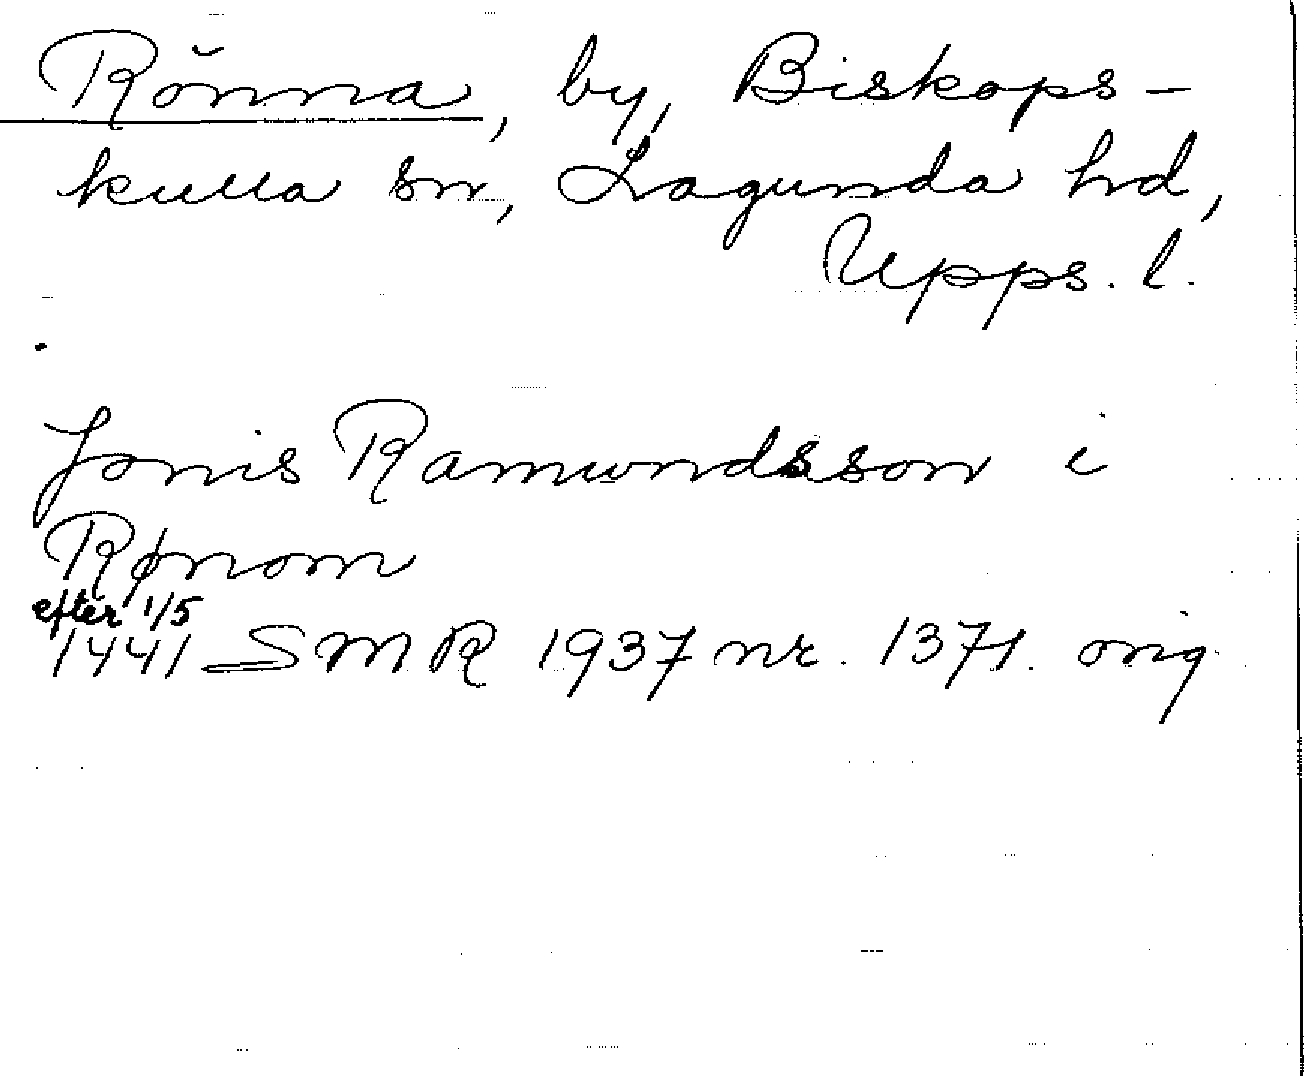 Rönna, by, Biskops-
kulla sn, Lagunda hd,
Upps. l.
Jonis Ramundsson i
Rønom
efter 1/5
1441 SMR 1937 nr. 1371. orig